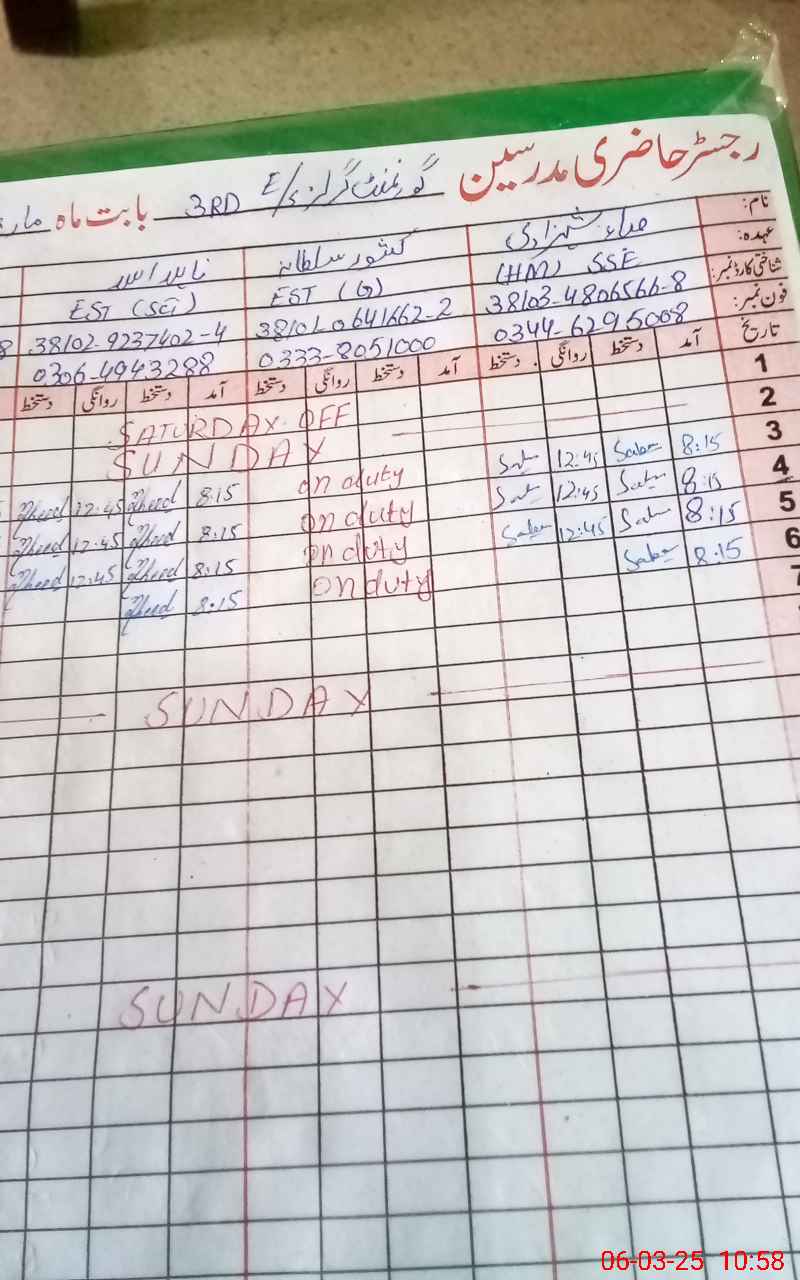 رجسٹر حاضری مدرسین گورنمنٹ گرلز E/S 3RD بابت ماہ
نام:
عہدہ: کشور سلطانہ
شناختی کارڈ نمبر: (HM) SSE EST (G) EST (SCI)
فون نمبر: 38103-4806566-8 38101-0641662-2 38102-9237402-4 8
تاریخ 0344-6295008 0333-8051000 0306-4943288
آمد دستخط روانگی دستخط آمد دستخط روانگی دستخط آمد دستخط روانگی دستخط
1 SATURDAY OFF
2 SUNDAY
3 8:15 12:45 on duty 8:15 12:45
4 8:15 12:45 on duty 8:15 12:45
5 8:15 12:45 on duty 8:15 12:45
6 8:15 on duty 8:15
7
SUNDAY
SUNDAY
06-03-25 10:58